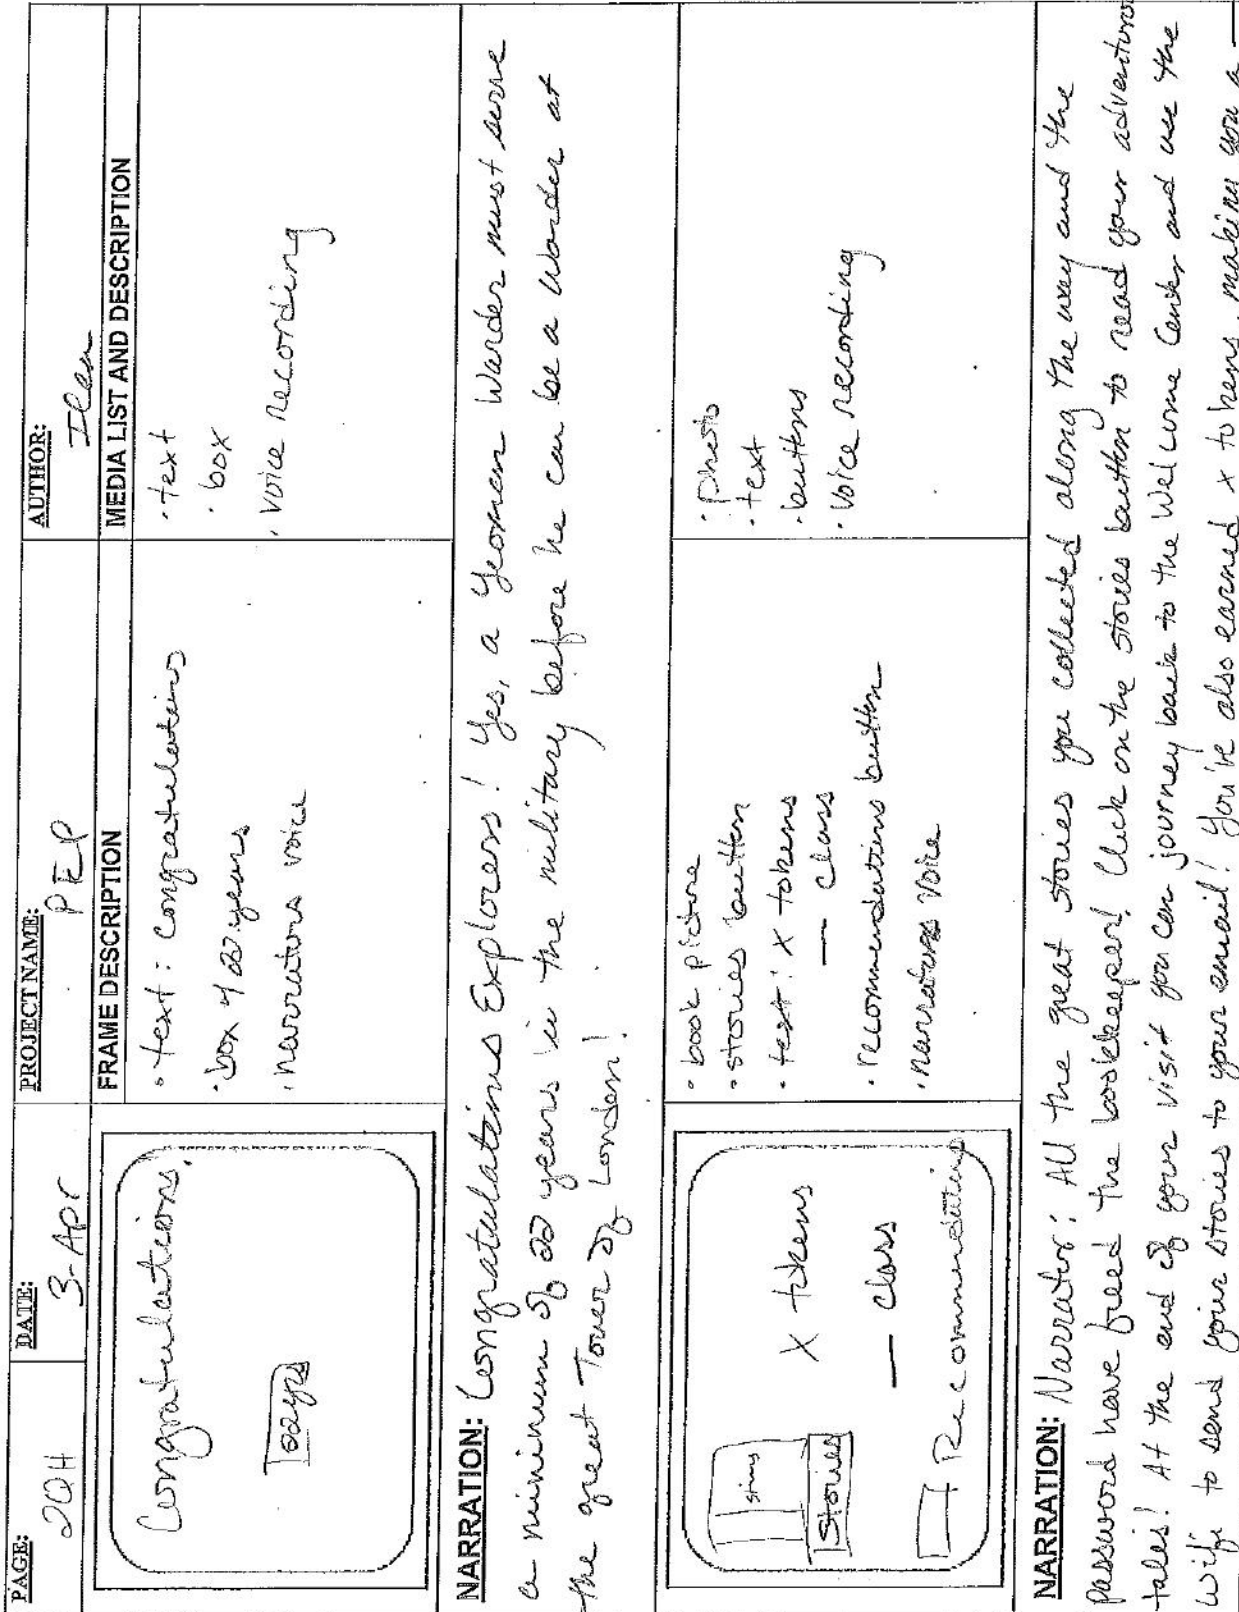 PAGE: 20H
DATE: 3-Apr
PROJECT NAME: PEP
AUTHOR: Ilen
FRAME DESCRIPTION
MEDIA LIST AND DESCRIPTION
Congratulations,
22 yrs
· text: congratulations
· box of 22 years
· narrators voice
· text
· box
· voice recording
NARRATION: Congratulations Explorers! Yes, a Yeoman Warder must serve
a minimum of 22 years in the military before he can be a Warder at
the great Tower of London!
Stories
X tokens
— class
Recommendations
· book picture
· stories button
· text: X tokens
— class
· recommendations button
· narrators voice
· photo
· text
· buttons
· voice recording
NARRATION: Narrator: All the great stories you collected along the way and the
password have freed the bookkeeper! Click on the stories button to read your adventure
tales! At the end of your visit you can journey back to the Welcome Center and use the
wifi to send your stories to your email! You've also earned x tokens, making you a —